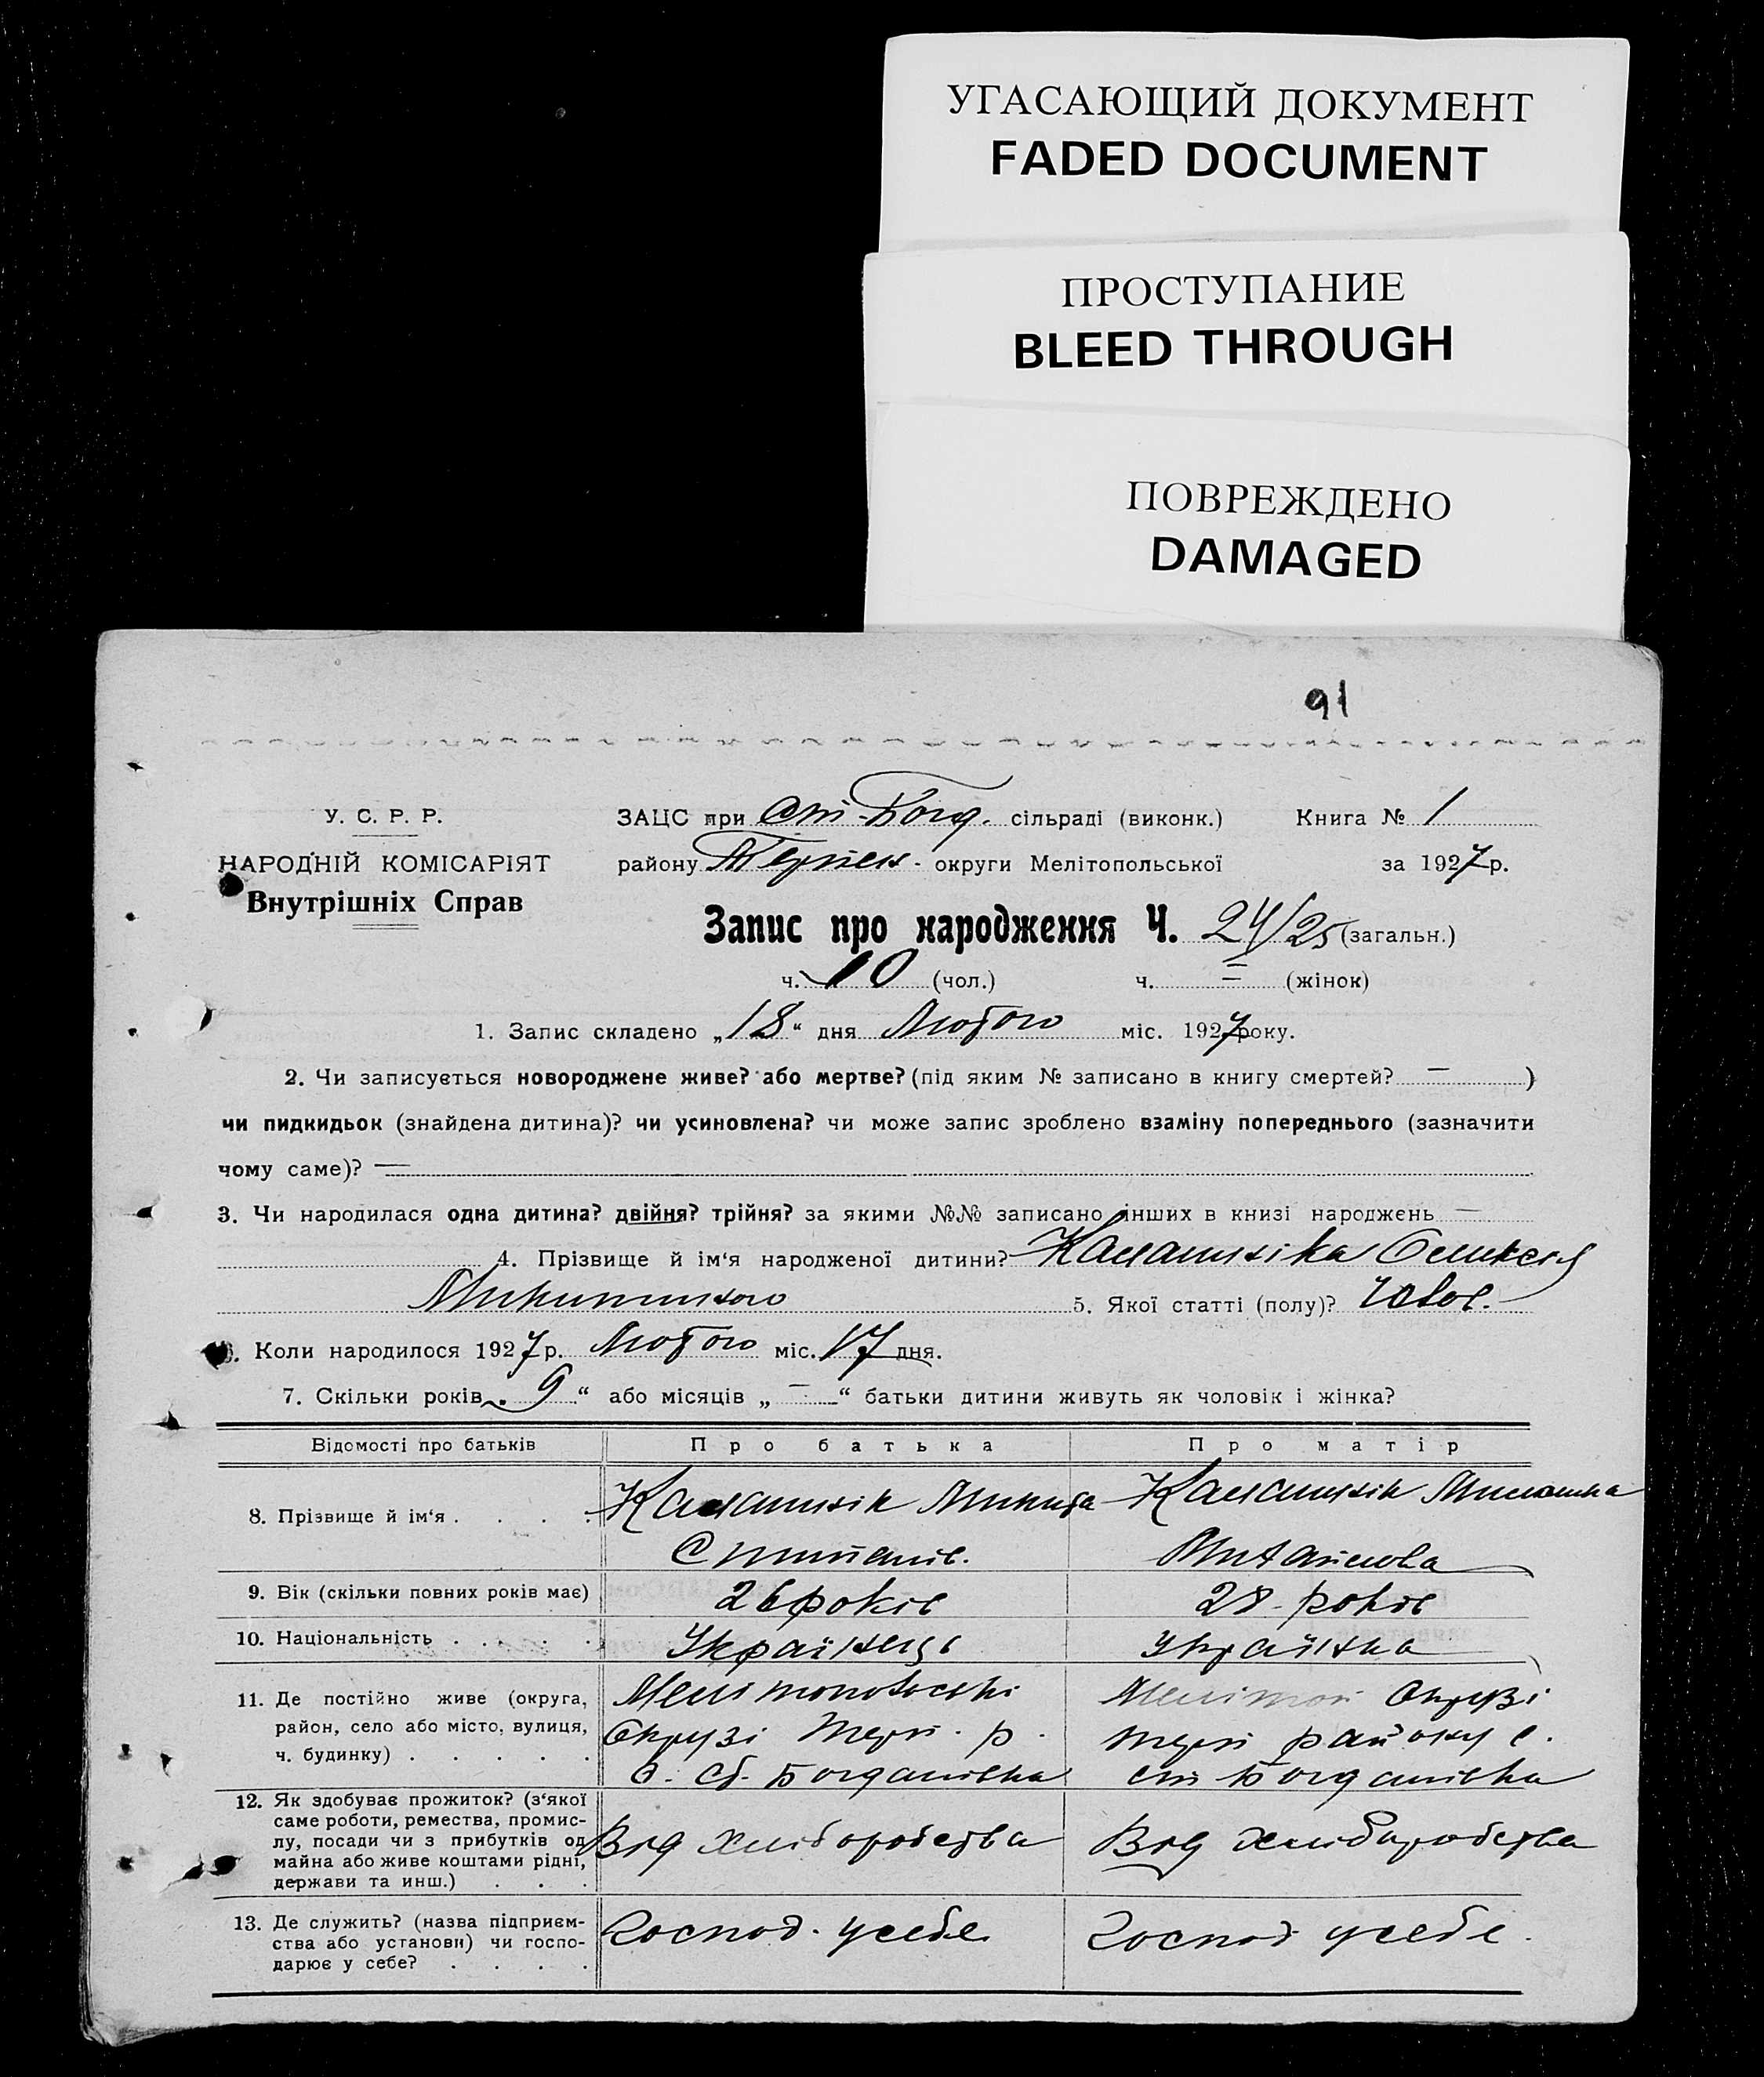 УГАСАЮЩИЙ ДОКУМЕНТ
FADED DOCUMENT
ПРОСТУПАНИЕ
BLEED THROUGH
ПОВРЕЖДЕНО
DAMAGED
91
У. С. Р. Р.
НАРОДНІЙ КОМІСАРІЯТ
Внутрішніх Справ
ЗАЦС при Ст-Богд. сільраді (виконк.) Книга № 1
району Терпен- округи Мелітопольської за 1927 р.
Запис про народження Ч. 24/25 (загальн.)
ч. 10 (чол.) ч. — (жінок)
1. Запис складено „18“ дня Лютого міс. 1927 року.
2. Чи записується новороджене живе? або мертве? (під яким № записано в книгу смертей? — )
чи пидкидьок (знайдена дитина)? чи усиновлена? чи може запис зроблено взаміну попереднього (зазначити
чому саме)? —
3. Чи народилася одна дитина? двійня? трійня? за якими №№ записано інших в книзі народжень —
4. Прізвище й ім'я народженої дитини?
5. Якої статті (полу)? Чолов.
6. Коли народилося 1927 р. Лютого міс. 17 дня.
7. Скільки років „9“ або місяців „—“ батьки дитини живуть як чоловік і жінка?
Відомості про батьків Про батька Про матір
8. Прізвище й ім'я . . . . Микита
9. Вік (скільки повних років має) 26 років 28 років
10. Національність . . . . . Українець Українка
11. Де постійно живе (округа,
район, село або місто, вулиця,
ч. будинку) . . . . .
Окрузі Терп. р. Терп району с.
с. Ст. Богданівка ст Богданівка
12. Як здобуває прожиток? (з'якої
саме роботи, ремества, промис-
лу, посади чи з прибутків од
майна або живе коштами рідні,
держави та инш.) . . .
Від хліборобства Від хліборобства
13. Де служить? (назва підприєм-
ства або установи) чи госпо-
дарює у себе? . . . .
Господ. усебе Господ усебе.